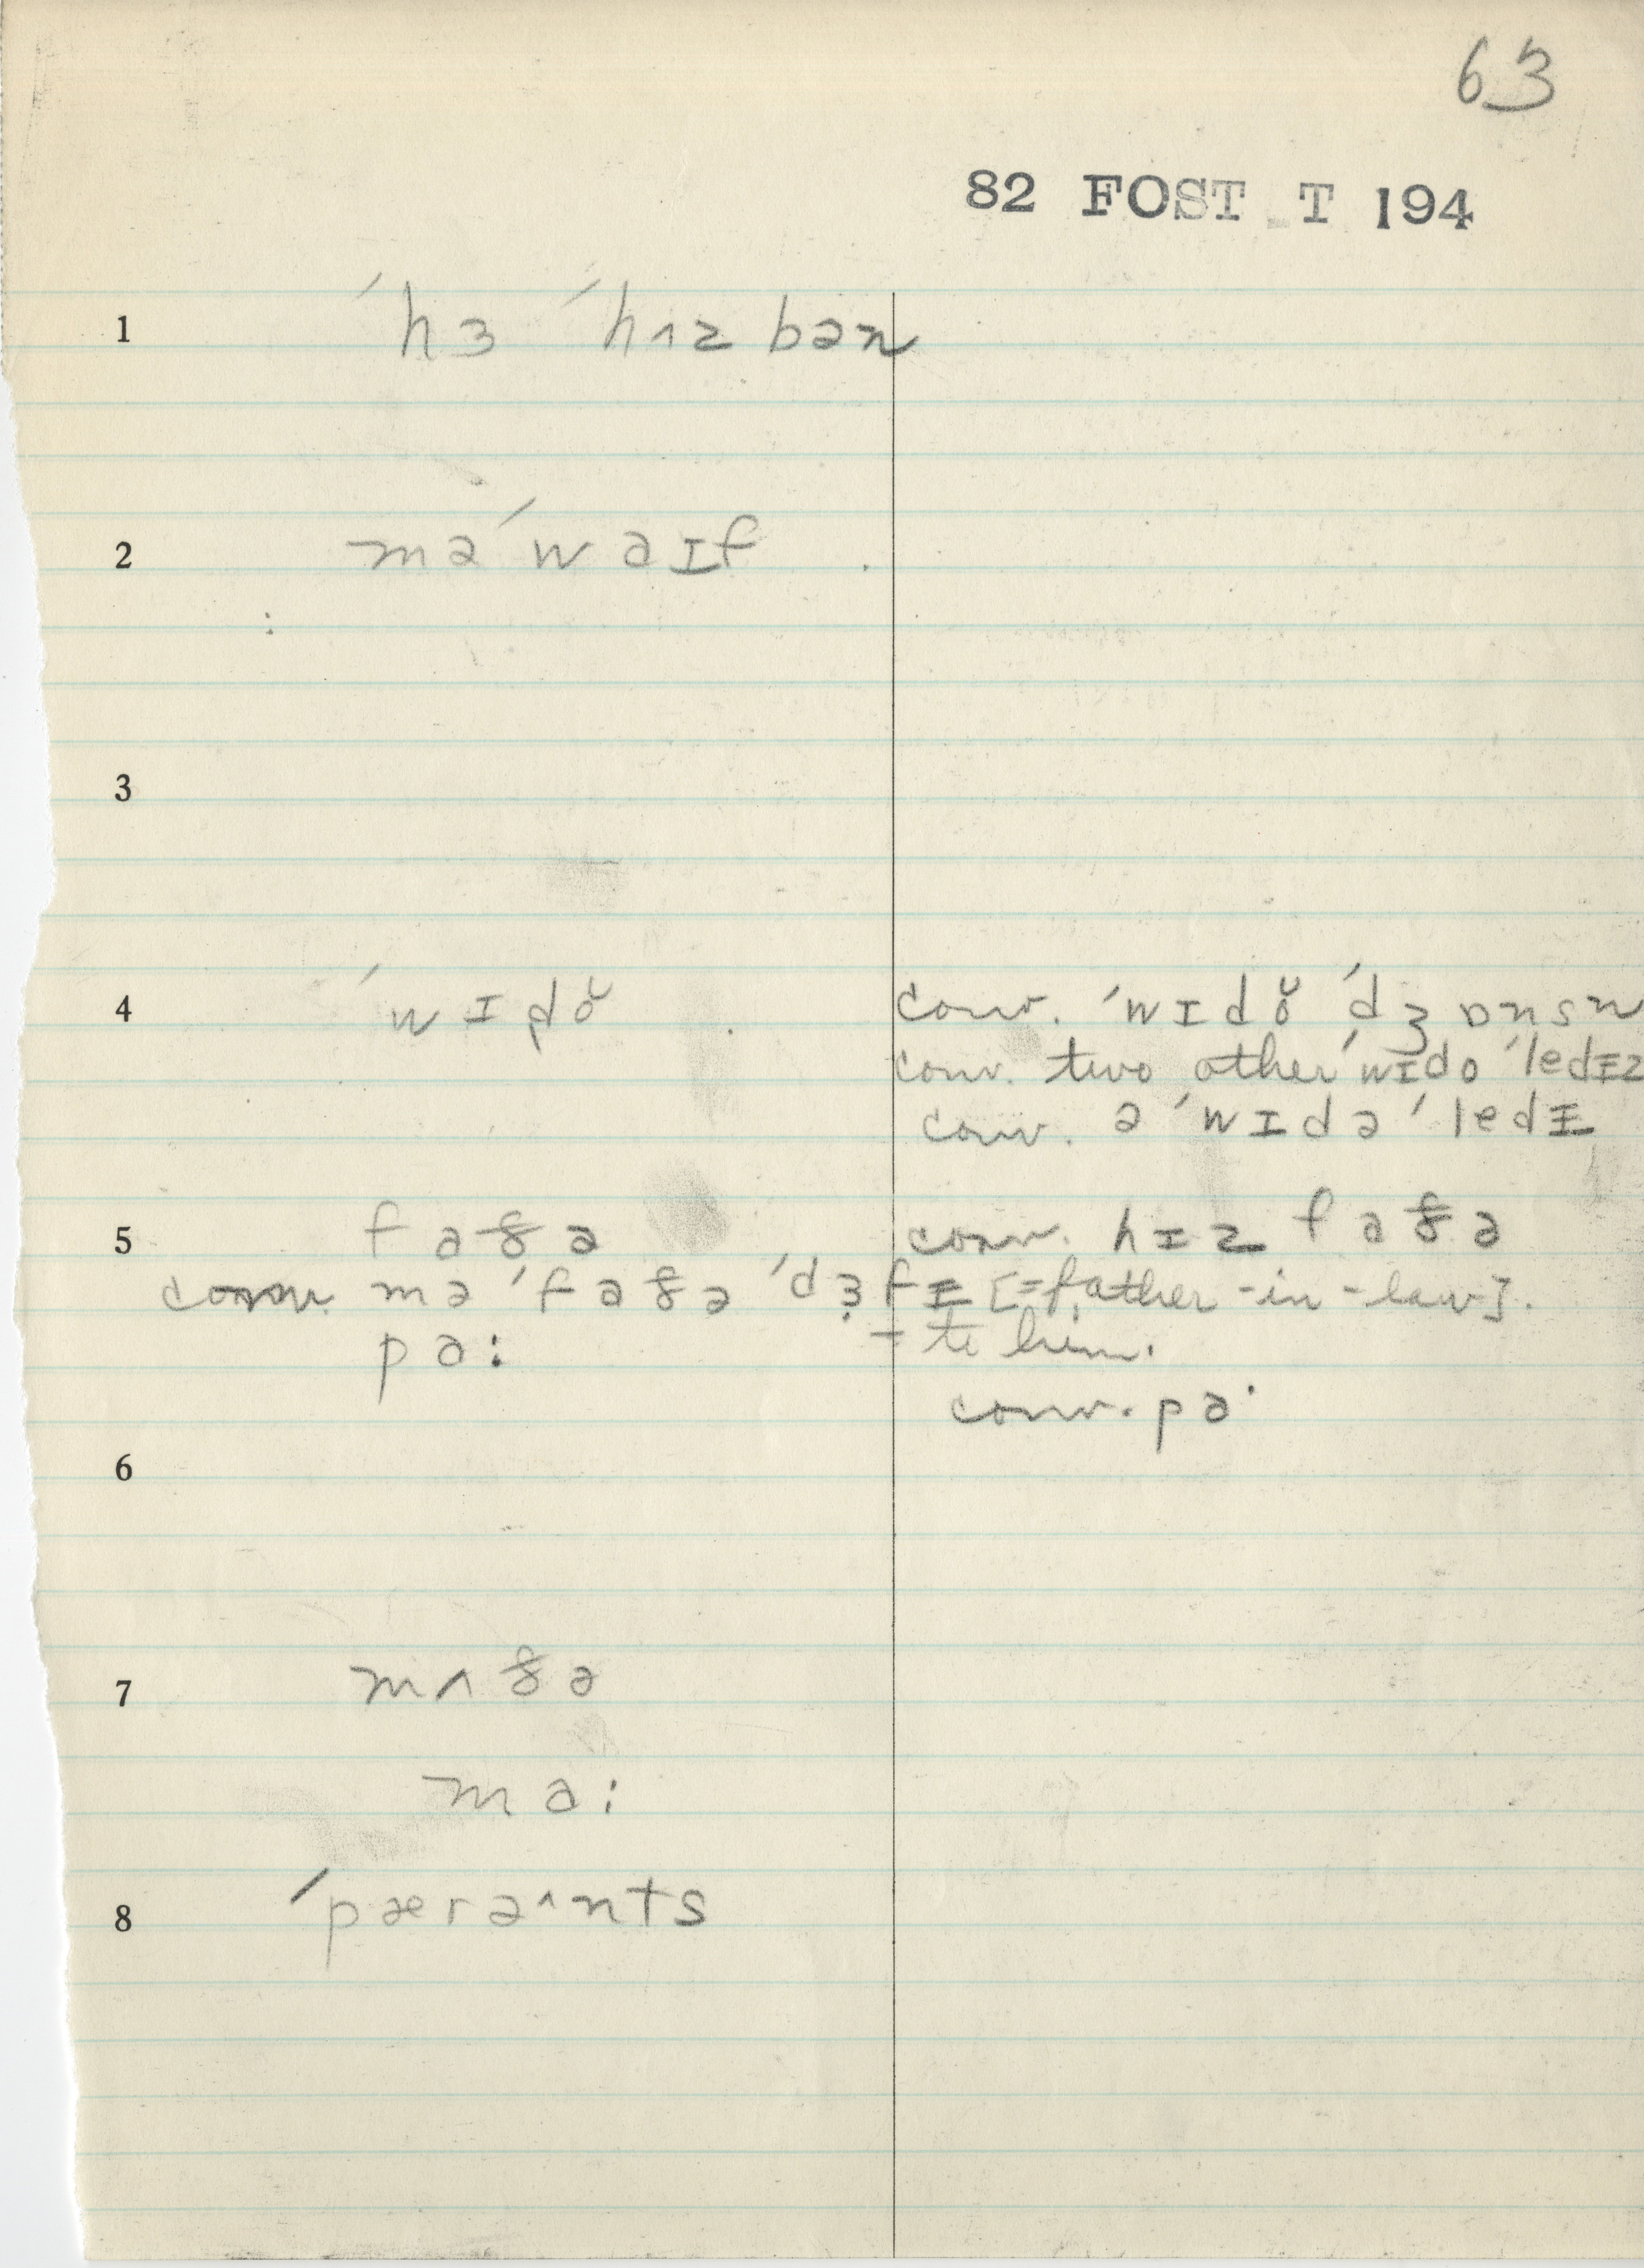 63
82 FOST T 194
1 ˈhɜ ˈhʌz bən
2 mə ˈwaɪf
3
4 ˈwɪdǒ conv. ˈwɪdǒ ˈdʒɒnsn
conv. two other ˈwɪdo ˈledɪz
conv. ə ˈwɪdə ˈledɪ
5 faðə conv. hɪz faðə
conv. mə ˈfaðə ˈdʒɜfɪ [=father-in-law].
pa: – to him.
conv. pa·
6
7 mʌðə
ma:
8 ˈpærə^nts